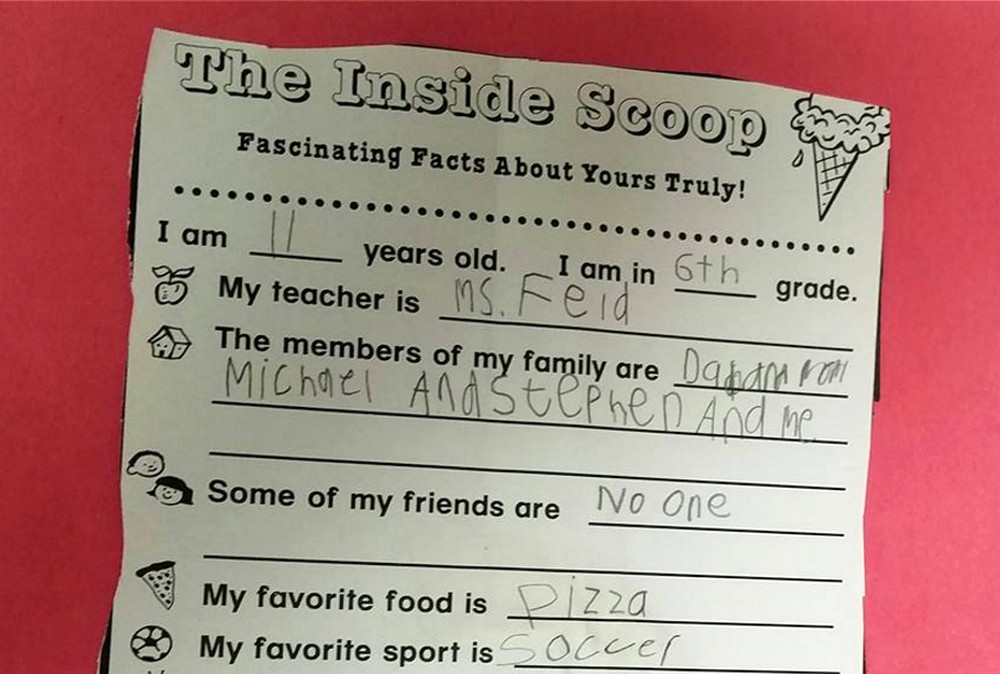 The Inside Scoop
Fascinating Facts About Yours Truly!
I am 11 years old. I am in 6th grade.
My teacher is Ms. Feid
The members of my family are mom
Michael And Stephen And me
Some of my friends are No one
My favorite food is pizza
My favorite sport is soccer